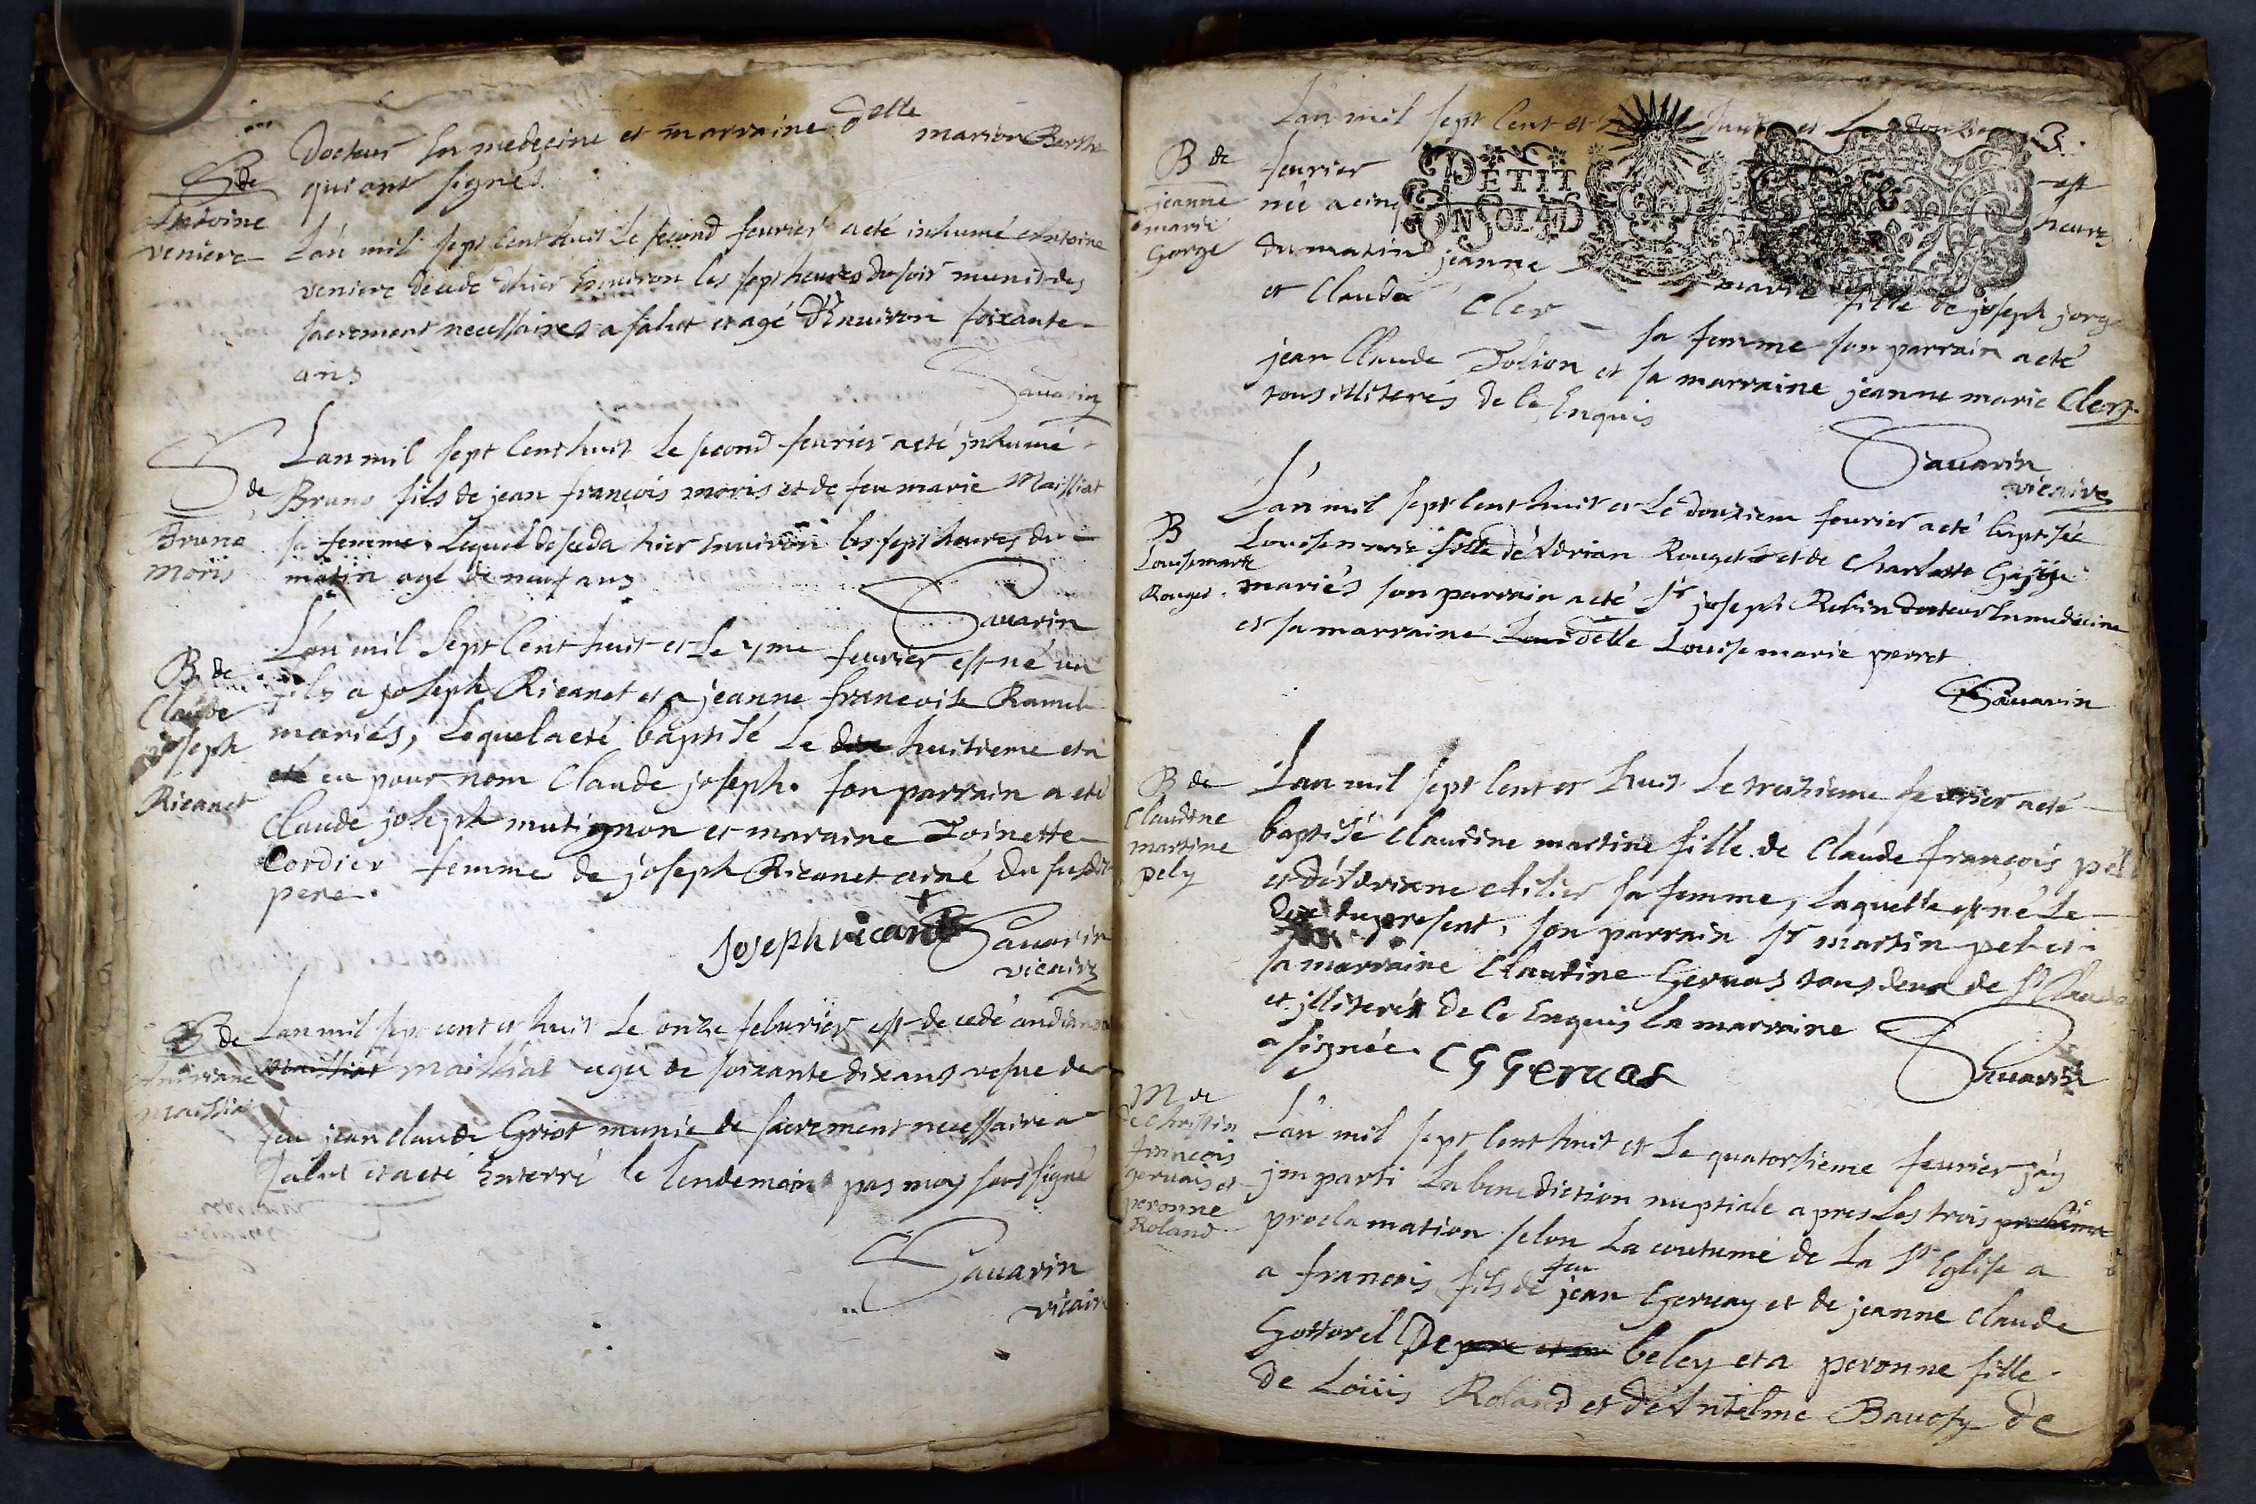 Docteur en medecine et marraine delle marion Berthe
qui ont signés
S de
Antoine
veniere
Lan mil sept Cent huit Le second feurier acté inhumé Antoine
veniere decede dhier Enuiron les sept heures du soir munit des
sacrement necessaires a salut et agé d'Enuiron soixante
ans
Sauarin
S de
Bruno
moris
Lan mil sept Cent huit Le second feurier acté jnhumé
Bruno fils de jean françois moris et de feu marie Maissiat
sa femme, Lequel deseda hier Enuiron les sept heures du
matin agé de neuf ans
Sauarin
B de
Claude
joseph
Ricanet
L'an mil Sept Cent huit et Le 7me feurier est né un
fils a joseph Ricanet et a jeanne francoise Ramel
mariés, Lequel acté baptisé Le dix huitieme et a
eté eu pour nom Claude joseph. son parrain a eté
Claude joseph mutignon et maraine Toinette
Cordier femme de joseph Ricanet ainé du susdit
pere.
Joseph ricanet
Sauarin
vicaire
S de
Andrianne
maissia
Lan mil sept cent et huit Le onze feburier est decedé andrianne
maissiat maissiat agee de soixante dix ans vefue de
feu jean claude Griot munie de sacrement necessaire a
salut et acté Enterré le lendemain pas moy sous signé
Sauarin
vicaire
3.
B de
jeanne
marie
Gorge
Lan mil sept Cent et huit et Le douzieme
feurier est
née a cinq heures
PETIT
EN SOL 4D
du matin jeanne marie fille de joseph jorge
et Clauda Cler sa femme son parrain acté
jean Claude Tolion et sa marraine jeanne marie Clerz
tous illiterés de ce Enquis
Sauarin
vicaire
B
Louise marie
Rouget
L'an mil sept Cent huit et Le douziem feurier acté baptisée
Louise marie fille d'Adrian Rouget et de Charlotte
mariés son parrain acté Sr joseph Robin docteur En medecine
et sa marraine delle Louise marie perret
Sauarin
B de
Claudine
martine
pely
Lan mil sept Cent et huit Le treizieme feurier acté
baptisé Claudine martine fille de Claude françois pel
et d'Adriane sa femme, Laquelle est né Le
dixe du present, son parrain Sr martin pel et
sa marraine Claudine Geruas tous deux de St Claude
et jlliterés de Ce Enquis La marraine
a signée. CG Geruas
Sauarin
M de
Christin
francois
geruais et
peronne
Roland
L'an mil sept Cent huit et Le quatorsieme feurier j'ay
jmparti La benediction nuptiale apres Les trois proclama
proclamation selon La coutume de La Ste Eglise a
a francois fils de feu jean Geruay et de jeanne claude
Gottorel De belcy et a peronne fille
de Loüis Roland et d'Antelme Baucfy de